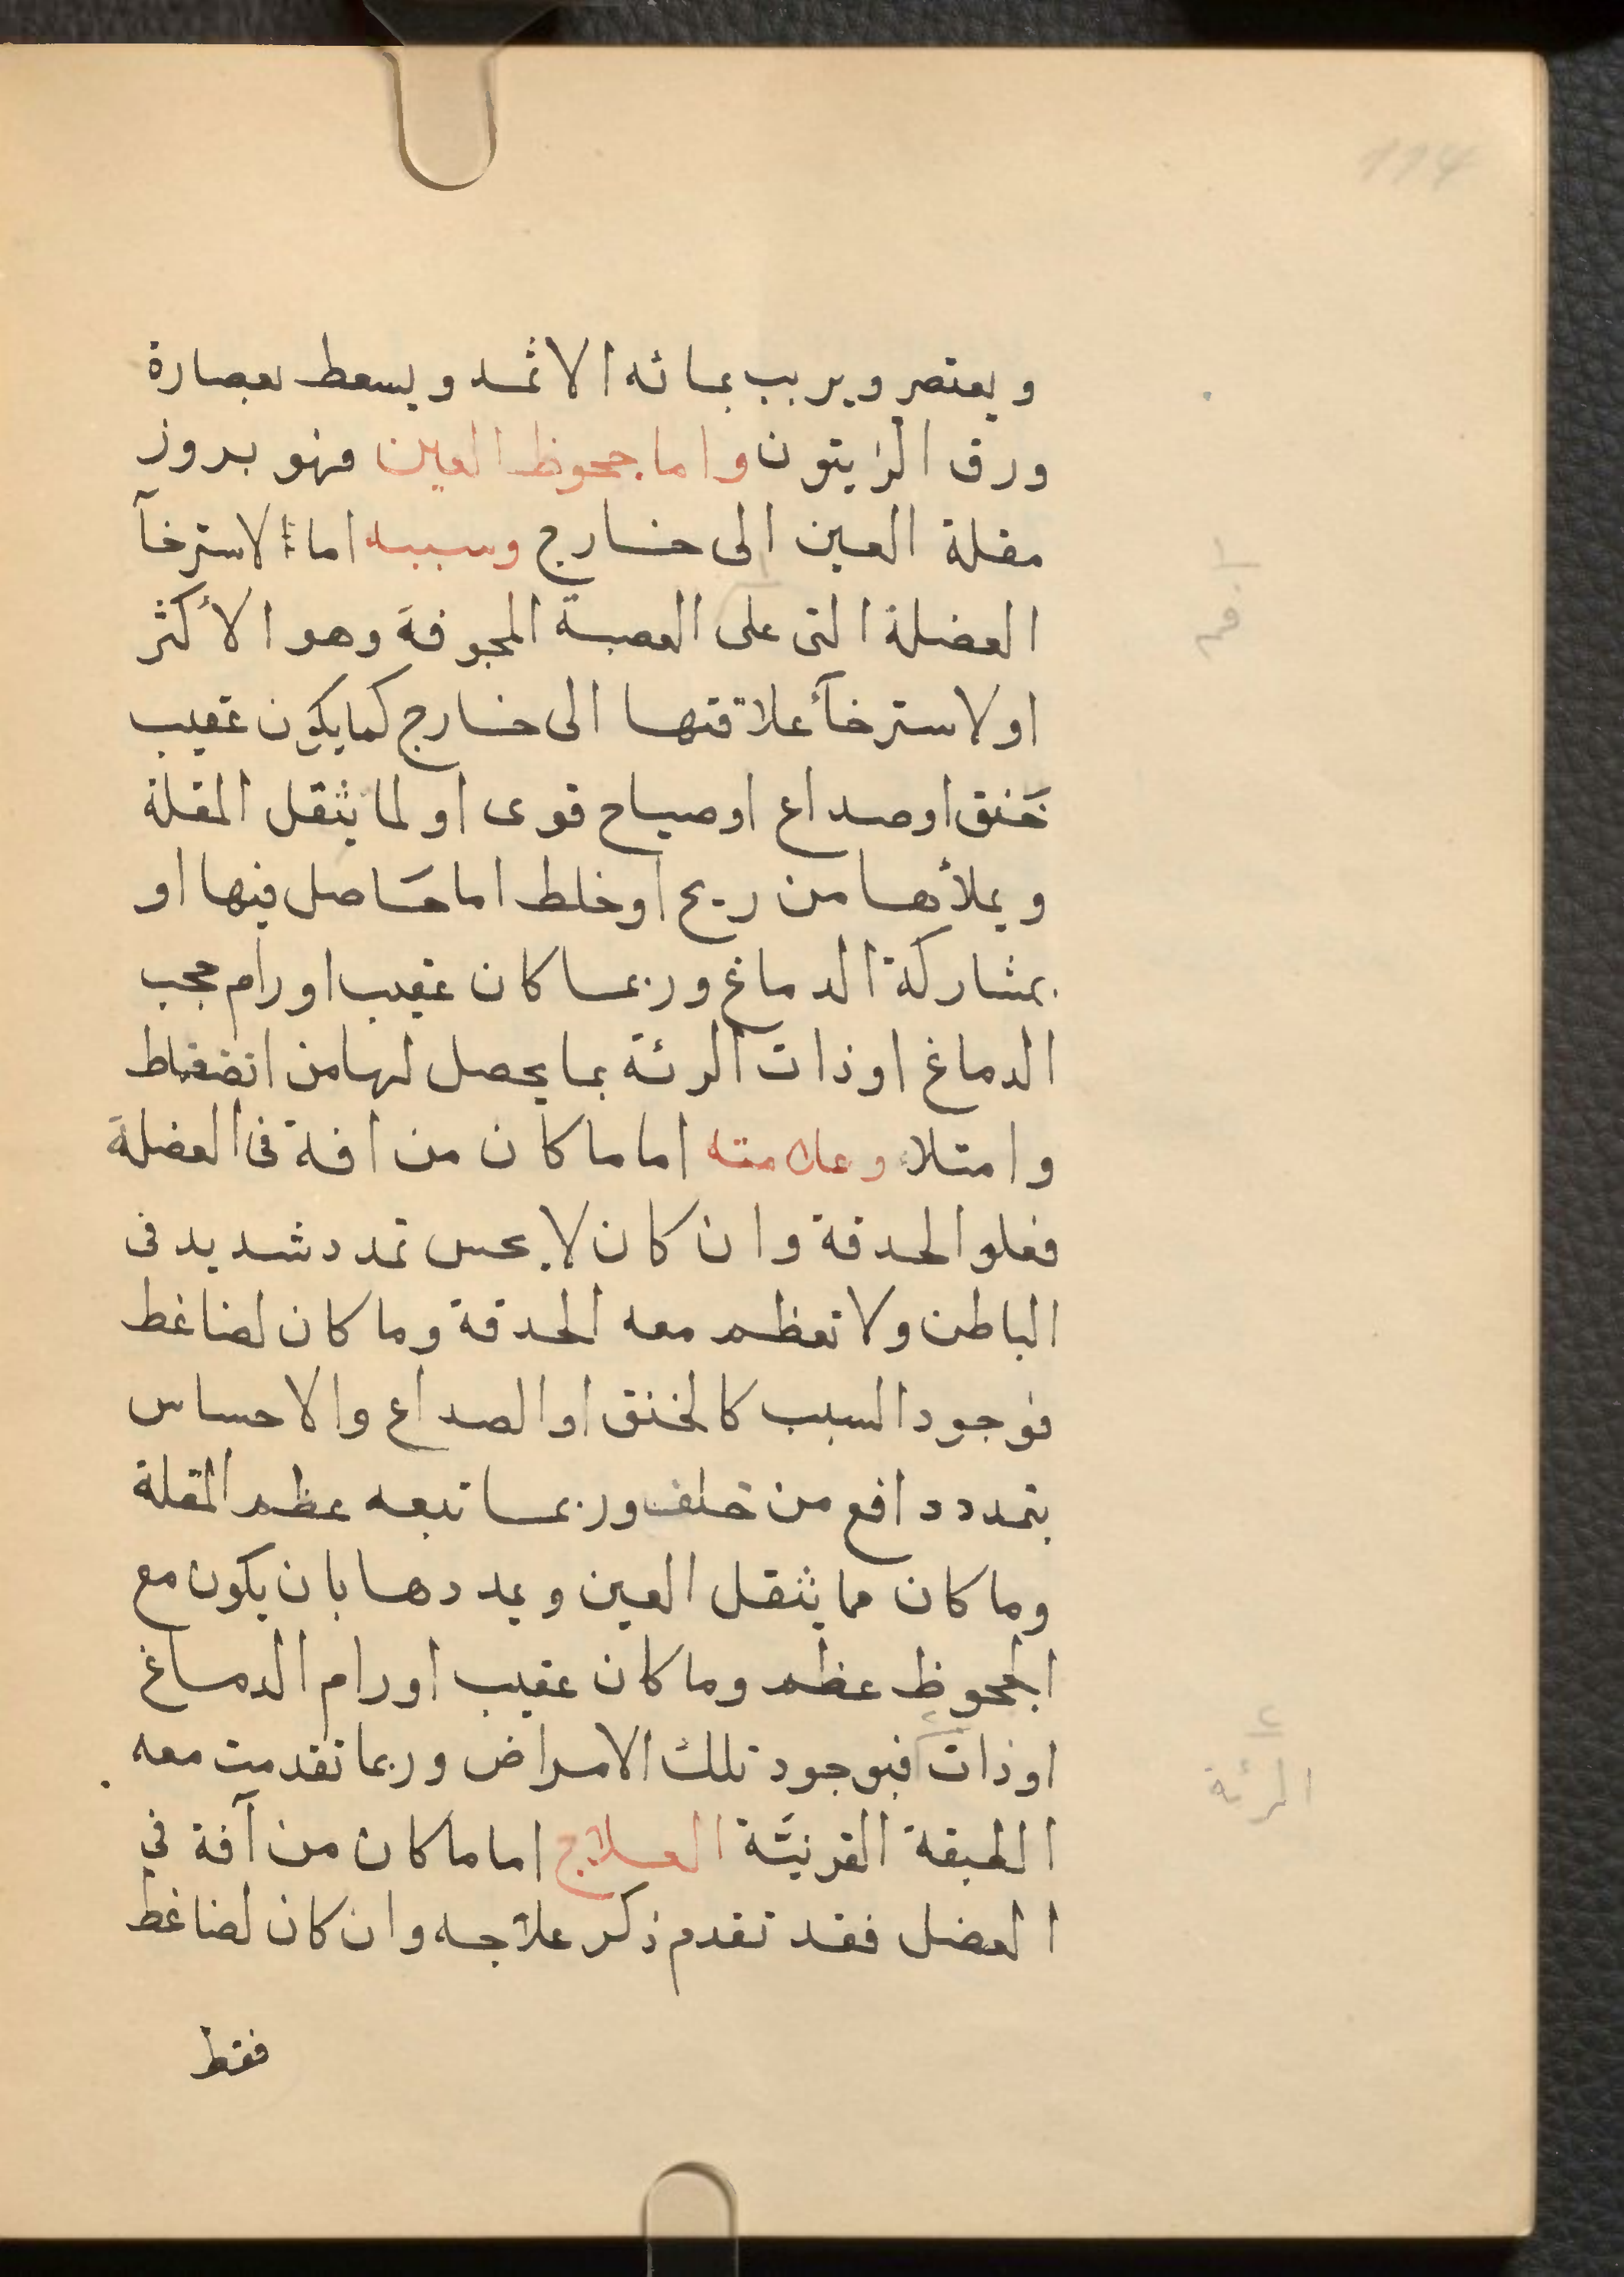 114
ويعتصر ويربب بمائه الاثمد ويسعط بعصارة
ورق الزيتون واما جحوظ العين فهو بروز
مقلة العين الى خارج وسببه اما لاسترخآ
العضلة التى على العصبة المجوفة وهو الأكثر
او لاسترخآء علاقتها الى خارج كما يكون عقيب
خَنق او صداع او صياح قوى او لما يثقل المقلة
ويملأها من ريح او خلط اما حَاصل فيها او
بمشاركة الدماغ وربما كان عقيب اورام حجب
الدماغ او ذات الرئة بما يحصل لها من انضغاط
وامتلاء وعلامته اما ما كان من افة فى العضلة
فعلو الحدقة وان كان لا يحس تمدد شديد فى
الباطن ولا تعظم معه الحدقة وما كان لضاغط
فوجود السبب كالخنق او الصداع والاحساس
بتمدد دافع من خلف وربما تبعه عظم المقلة
وما كان مما يثقل العين ويمددها بان يكون مع
الجحوظ عظم وما كان عقيب اورام الدماغ
او ذات فبوجود تلك الامراض وربما تقدمت معه
٢
الرئة
الطبقة القرنيَّة العلاج اما ما كان من آفة في
العضل فقد تقدم ذكر علاجه وان كان لضاغط
فقط